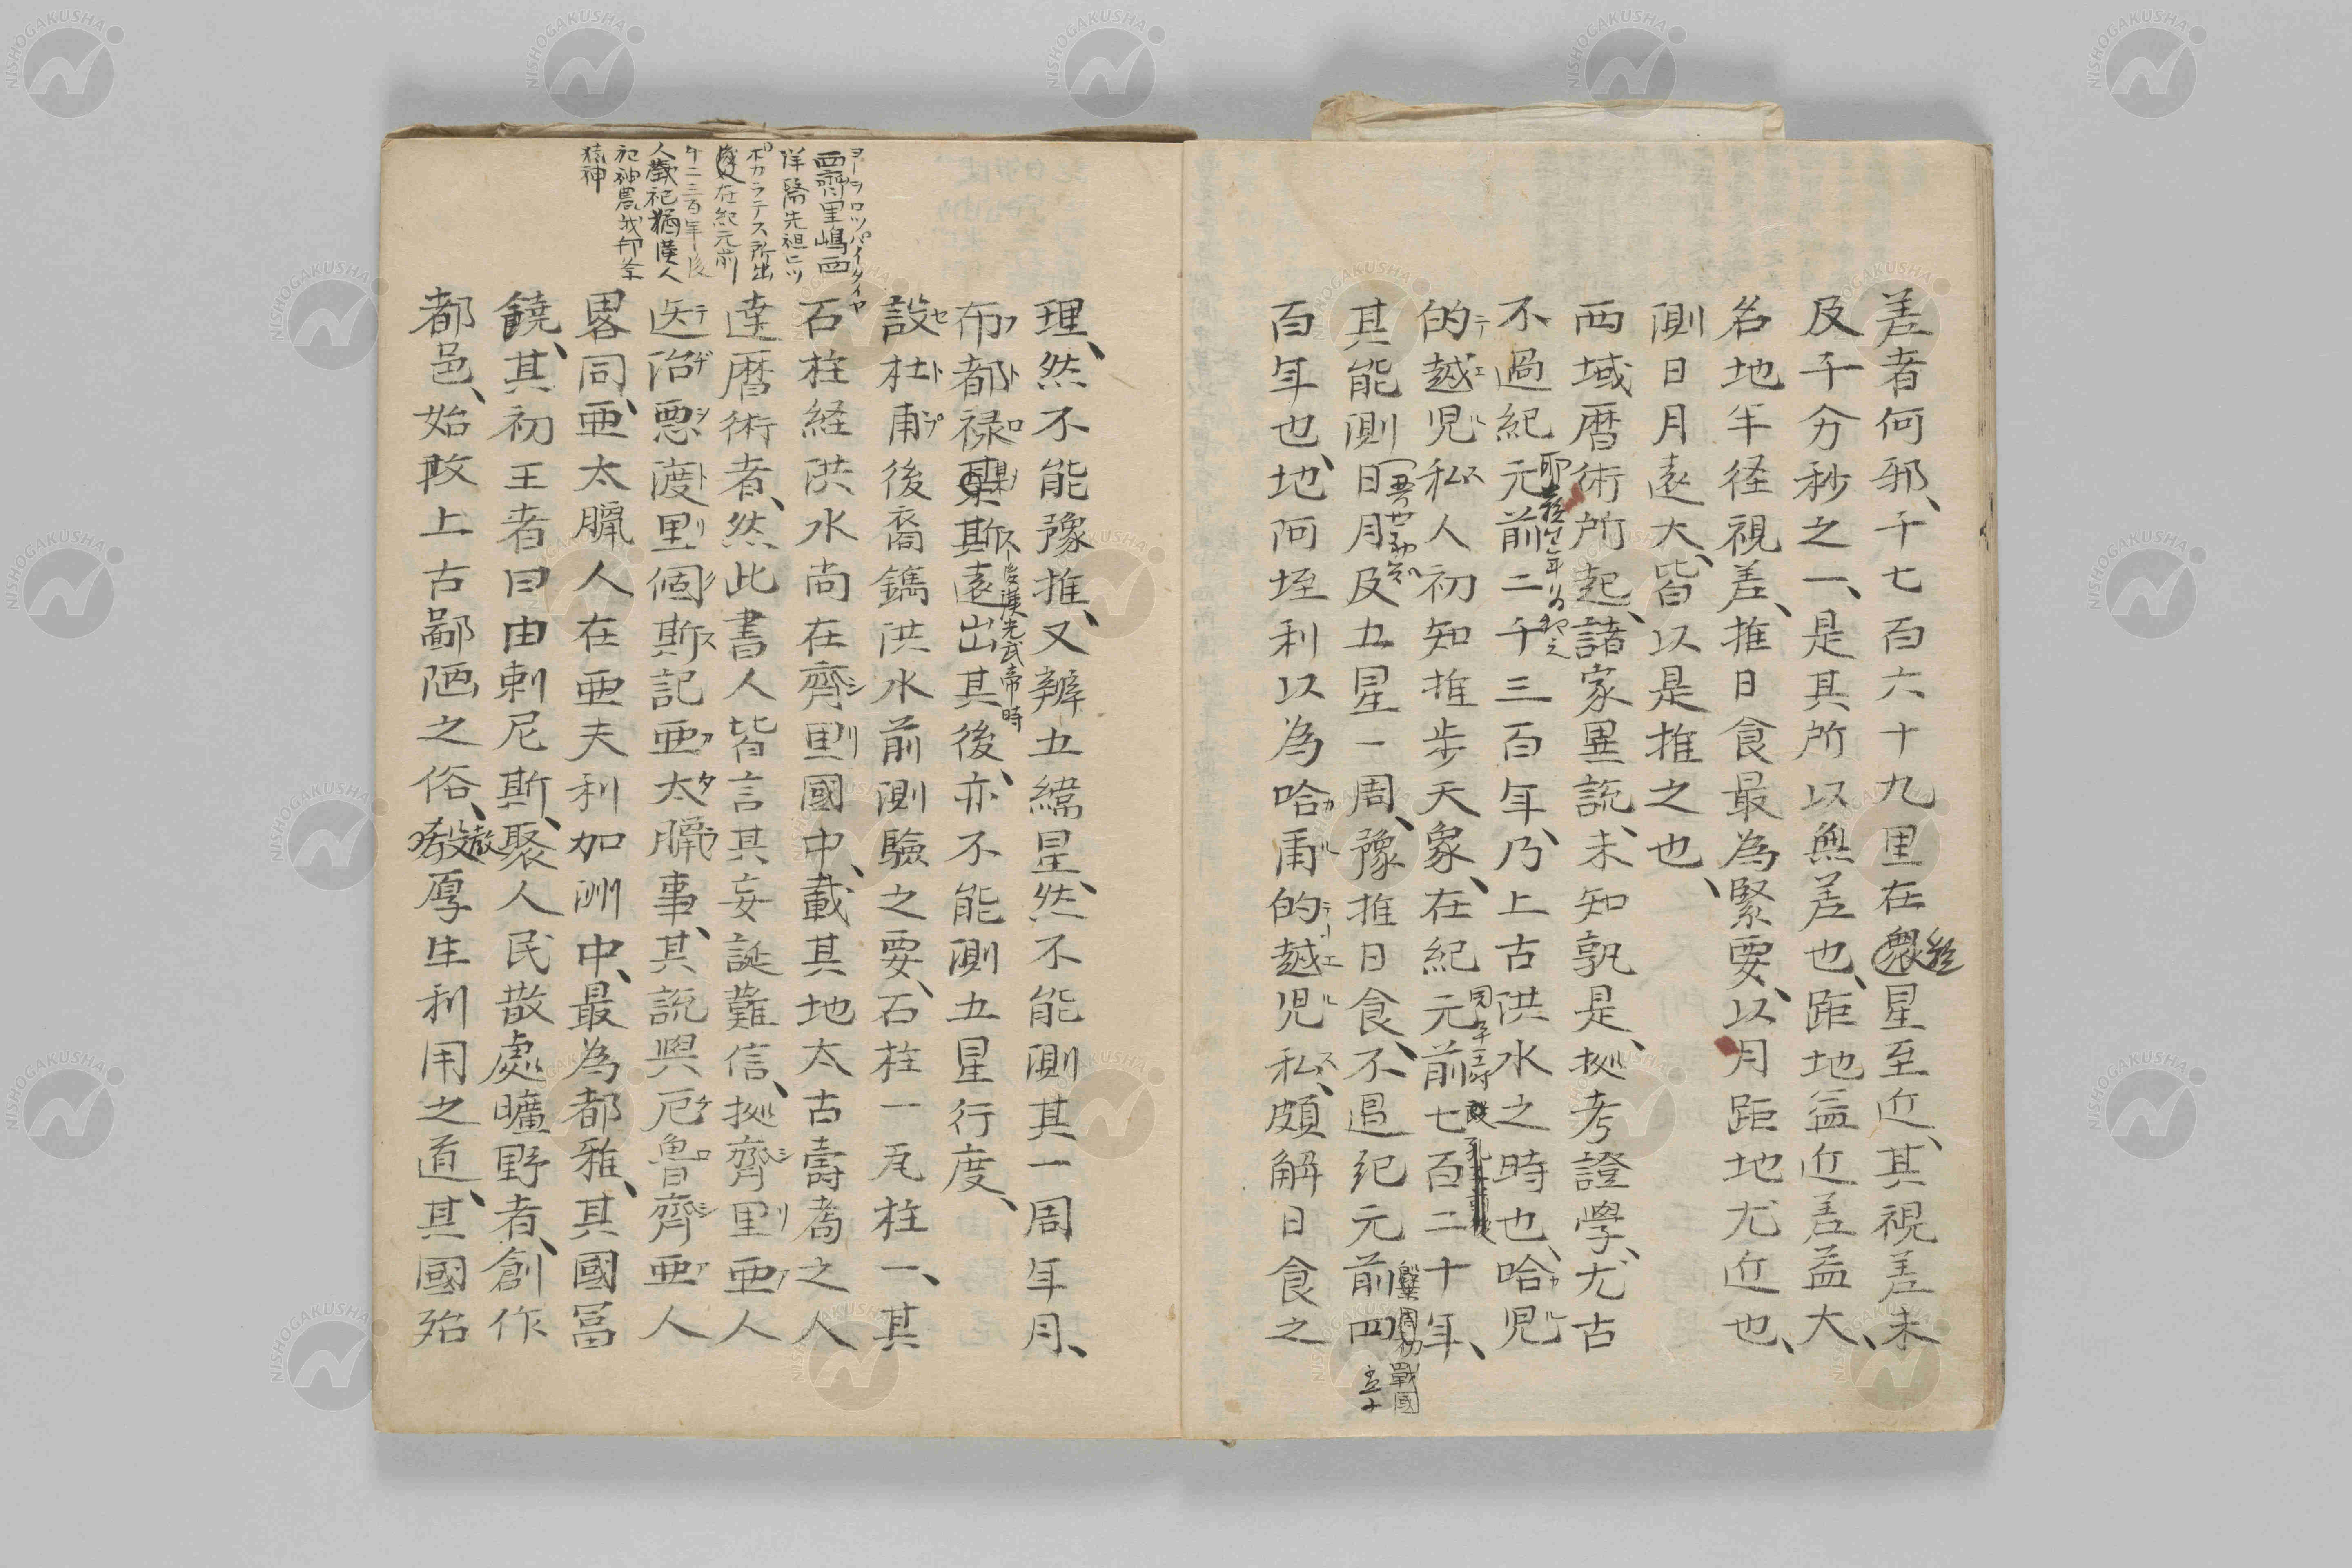 差者何邪、千七百六十九里在衆星至近、其視差未
経
及千分秒之一、是其所以無差也、距地益近差益大、
名地半径視差、推日食最為緊要、以月距地尤近也、
測日月遠大、皆以是推之也、
西域暦術所起、諸家異説、未知孰是、拠考證學、尤古
不過紀元前二千三百年、乃上古洪水之時也、哈児
カル
的越児私人初知推歩天象、在紀元前七百二十年、
テエルス
其能測日月及五星一周、豫推日食、不過紀元前四
戰國
百年也、地阿垤利以為哈甫的越児私、頗解日食之
カルテーエルス
理、然不能豫推、又辨五緯星、然不能測其一周年月、
布都禄某斯遠出其後、亦不能測五星行度、
フトロ ス
後漢光武帝時
設杜甫後裔鐫洪水前測驗之要、石柱一瓦柱一、其
セトプ
石柱経洪水尚在齊里國中、載其地太古壽耈之人
シリ
達暦術者、然此書人皆言其妄誕難信、拠齊里亜人
シリア
迭治悪渡里個斯記亜太臈事、其説與厄魯齊亜人
テヂシトリ ス アタラ ケロシア
畧同、亜太臈人在亜夫利加洲中、最為都雅、其國冨
饒、其初王者曰由刺尼斯、聚人民散處曠野者、創作
都邑、始改上古鄙陋之俗、教厚生利用之道、其國殆
ヨーヲロツパイタイヤ
西齊里嶋西
洋醫先祖ヒツ
ポカラテス所出
在紀元前
ケ二三百年後
人歳祀猶漢人
祀神農我邦祭
猿神
NISHOGAKUSHA